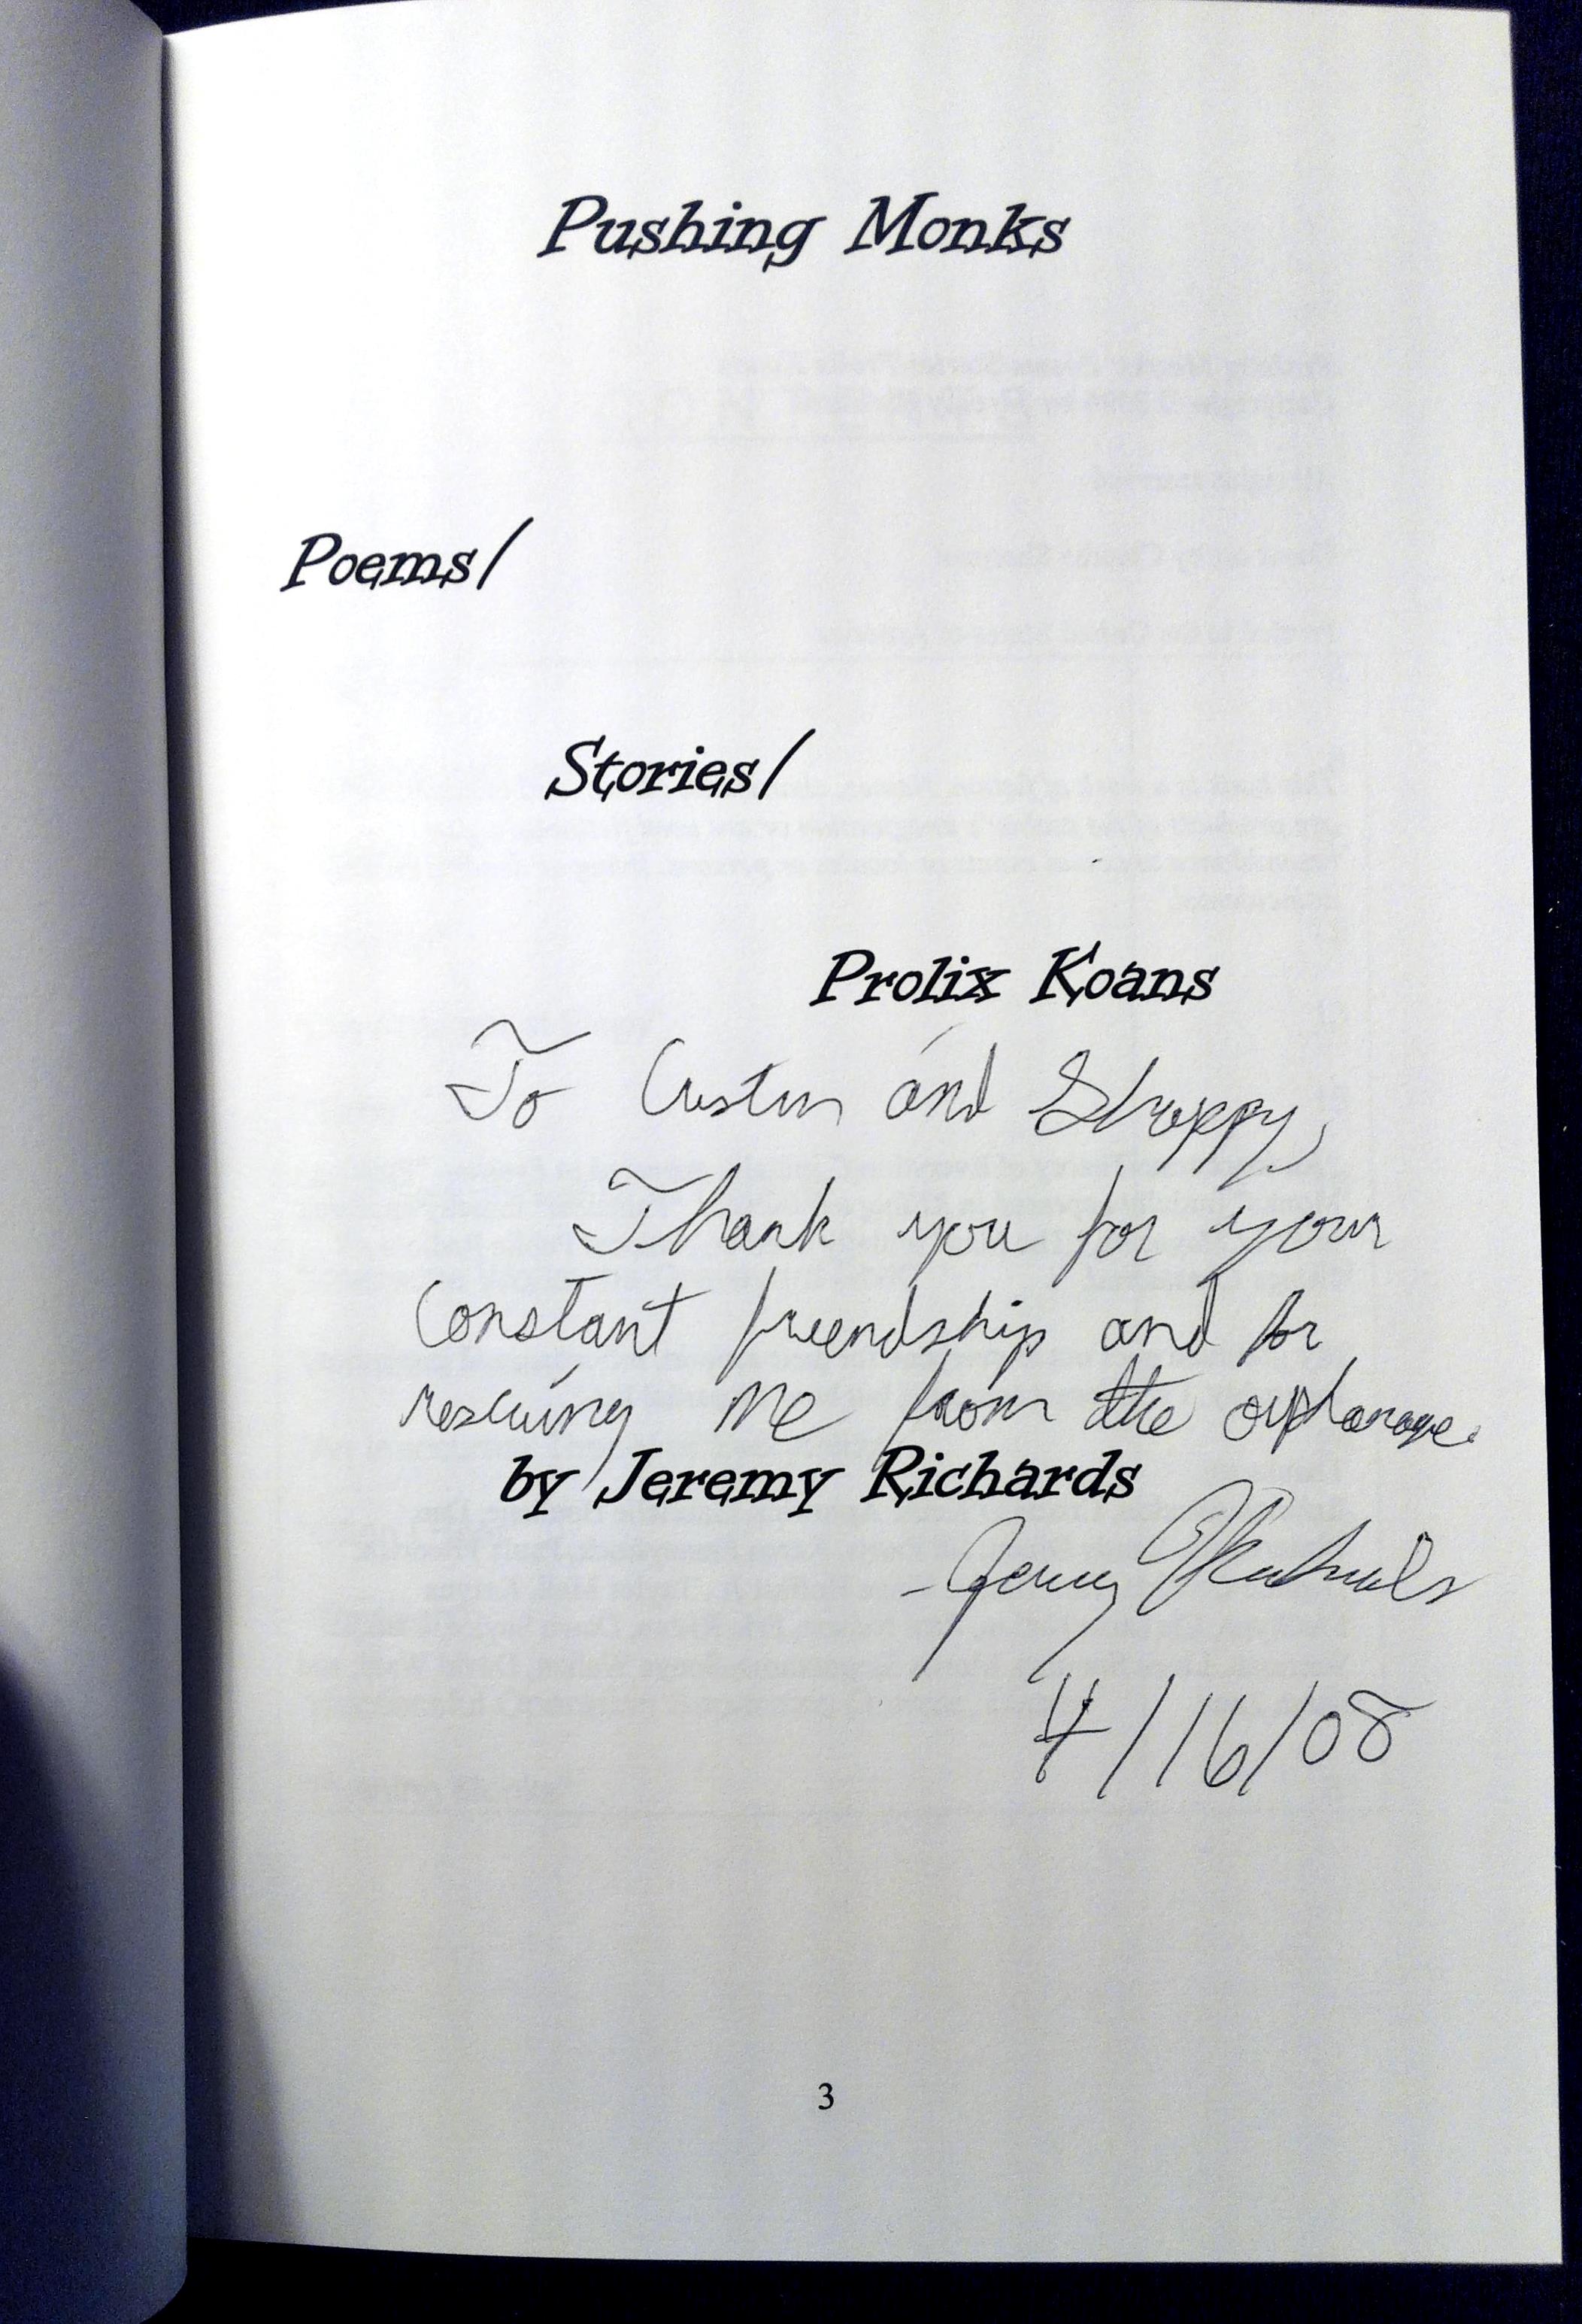 Pushing Monks
Poems/
Stories/
Prolix Koans
To and
Thank you for your
constant friendship and for
rescuing me from the orphanage.
by Jeremy Richards
- Jeremy Richards
4/16/08
3